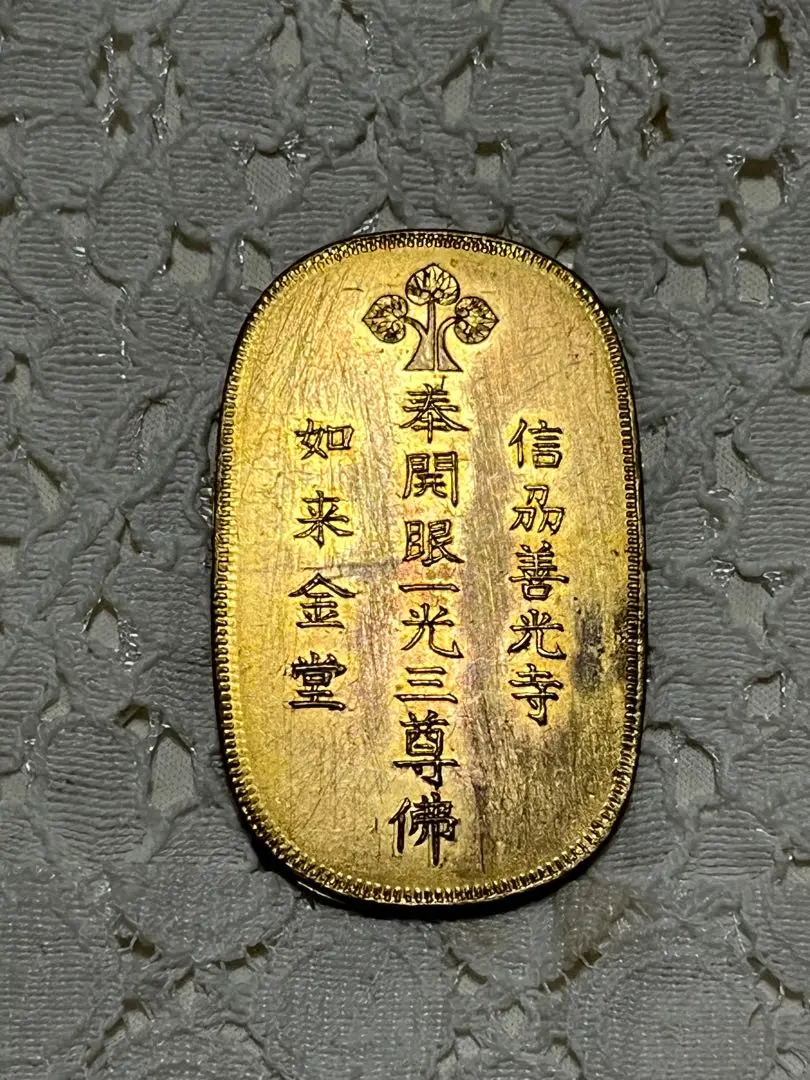 信刕善光寺
奉開眼一光三尊佛
如来金堂